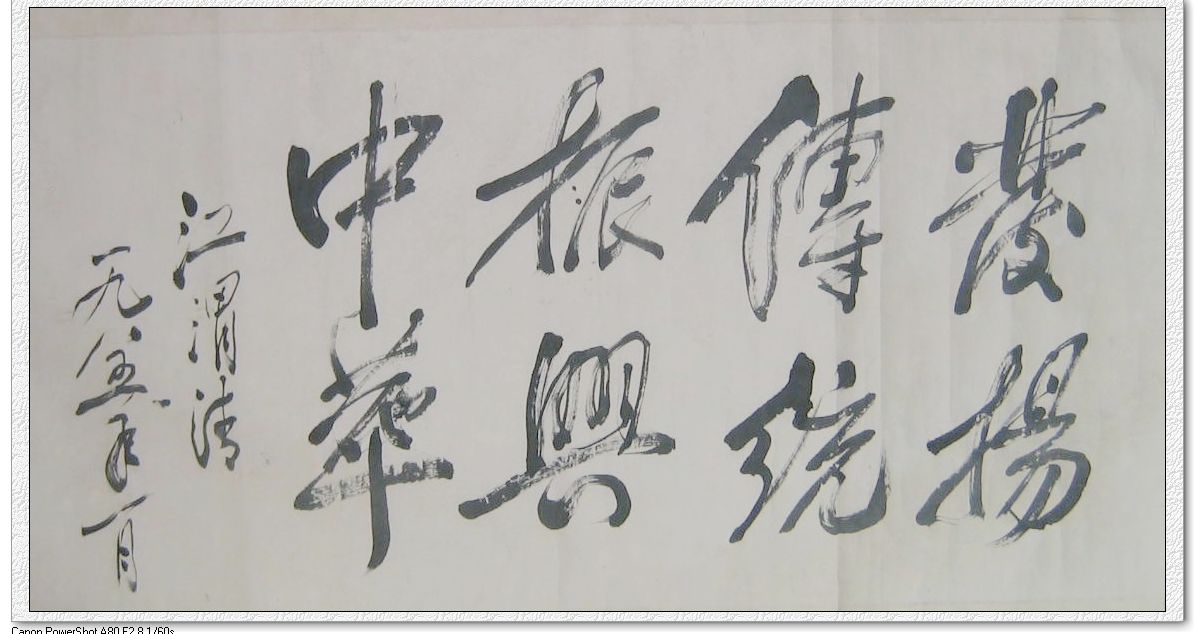 發揚
傳統
振興
中華
江渭清
一九八五年一月
Canon PowerShot A80 F2.8 1/60s